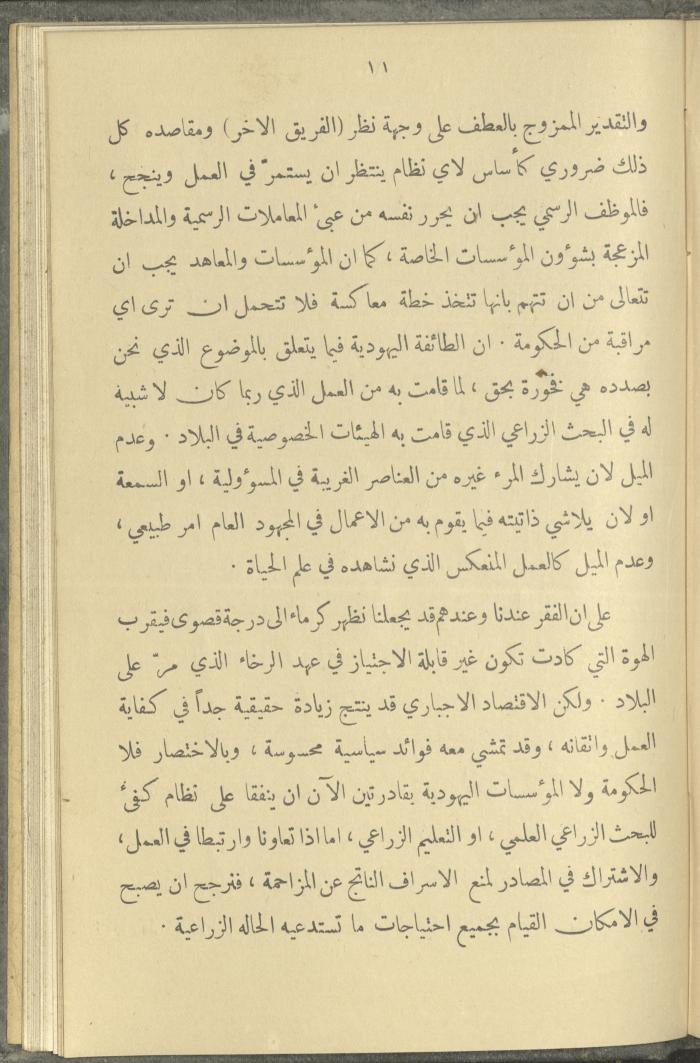 ١١
والتقدير الممزوج بالعطف على وجهة نظر (الفريق الاخر) ومقاصده كل
ذلك ضروري كأساس لاي نظام ينتظر ان يستمرّ في العمل وينجح ،
فالموظف الرسمي يجب ان يحرر نفسه من عبئ المعاملات الرسمية والمداخلة
المزعجة بشوٴون الموٴسسات الخاصة ، كما ان الموٴسسات والمعاهد يجب ان
تتعالى من ان تتهم بانها تتخذ خطة معاكسة فلا تتحمل ان ترى اي
مراقبة من الحكومة . ان الطائفة اليهودية فيما يتعلق بالموضوع الذي نحن
بصدده هي فخورة بحق ، لما قامت به من العمل الذي ربما كان لا شبيه
له في البحث الزراعي الذي قامت به الهيئات الخصوصية في البلاد . وعدم
الميل لان يشارك المرء غيره من العناصر الغريبة في المسوٴولية ، او السمعة
او لان يلاشي ذاتيته فيما يقوم به من الاعمال في المجهود العام امر طبيعي ،
وعدم الميل كالعمل المنعكس الذي نشاهده في علم الحياة .
على ان الفقر عندنا وعندهم قد يجعلنا نظهر كرماء الى درجة قصوى فيقرب
الهوة التي كادت تكون غير قابلة الاجتياز في عهد الرخاء الذي مرّ على
البلاد . ولكن الاقتصاد الاجباري قد ينتج زيادة حقيقية جداً في كفاية
العمل واتقانه ، وقد تمشي معه فوائد سياسية محسوسة ، وبالاختصار فلا
الحكومة ولا الموٴسسات اليهودية بقادرتين الآن ان ينفقا على نظام كفئ
للبحث الزراعي العلمي ، او التعليم الزراعي ، اما اذا تعاونا وارتبطا في العمل ،
والاشتراك في المصادر لمنع الاسراف الناتج عن المزاحمة ، فنرجح ان يصبح
في الامكان القيام بجميع احتياجات ما تستدعيه الحاله الزراعية .